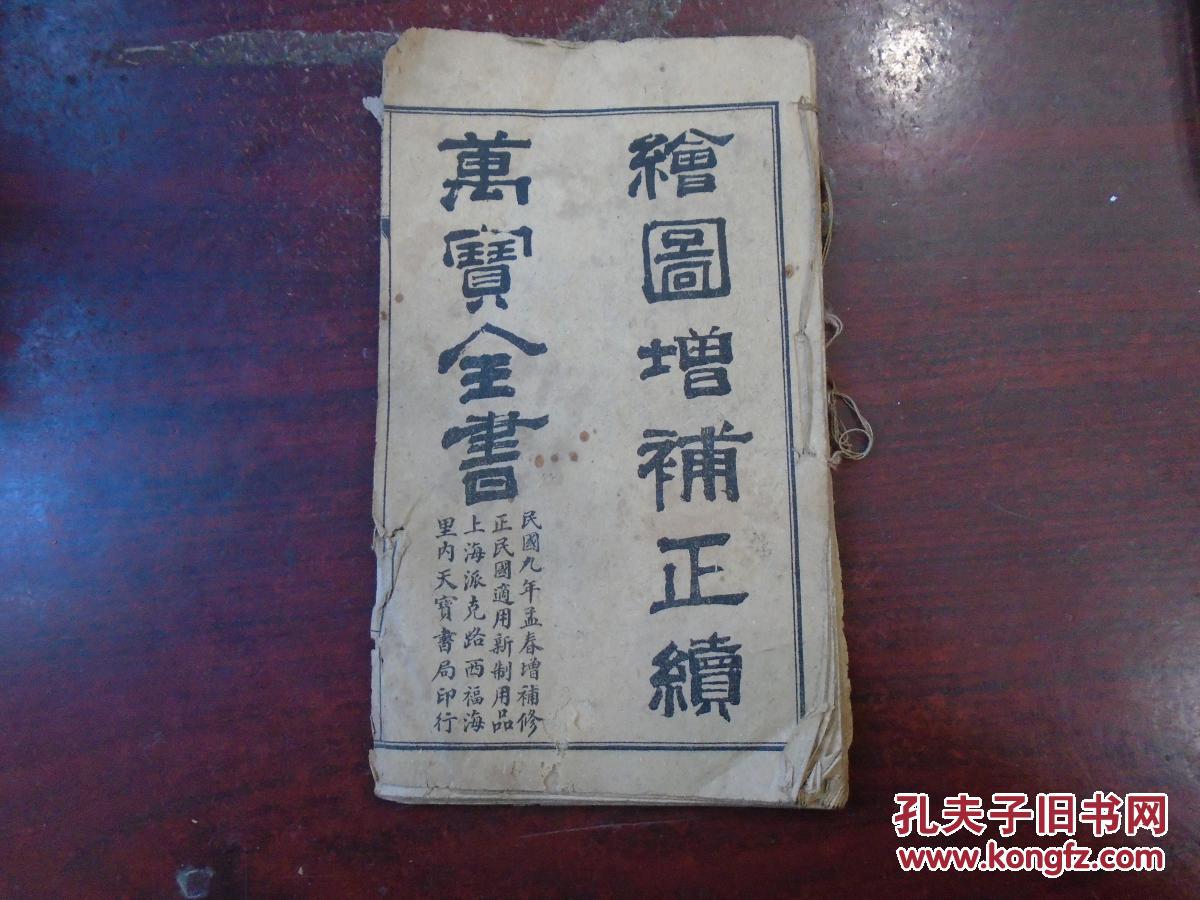 繪圖增補正續
萬寶全書
民國九年孟春增補修
正民國適用新制用品
上海派克路西福海
里內天寶書局印行
孔夫子旧书网
www.kongfz.com